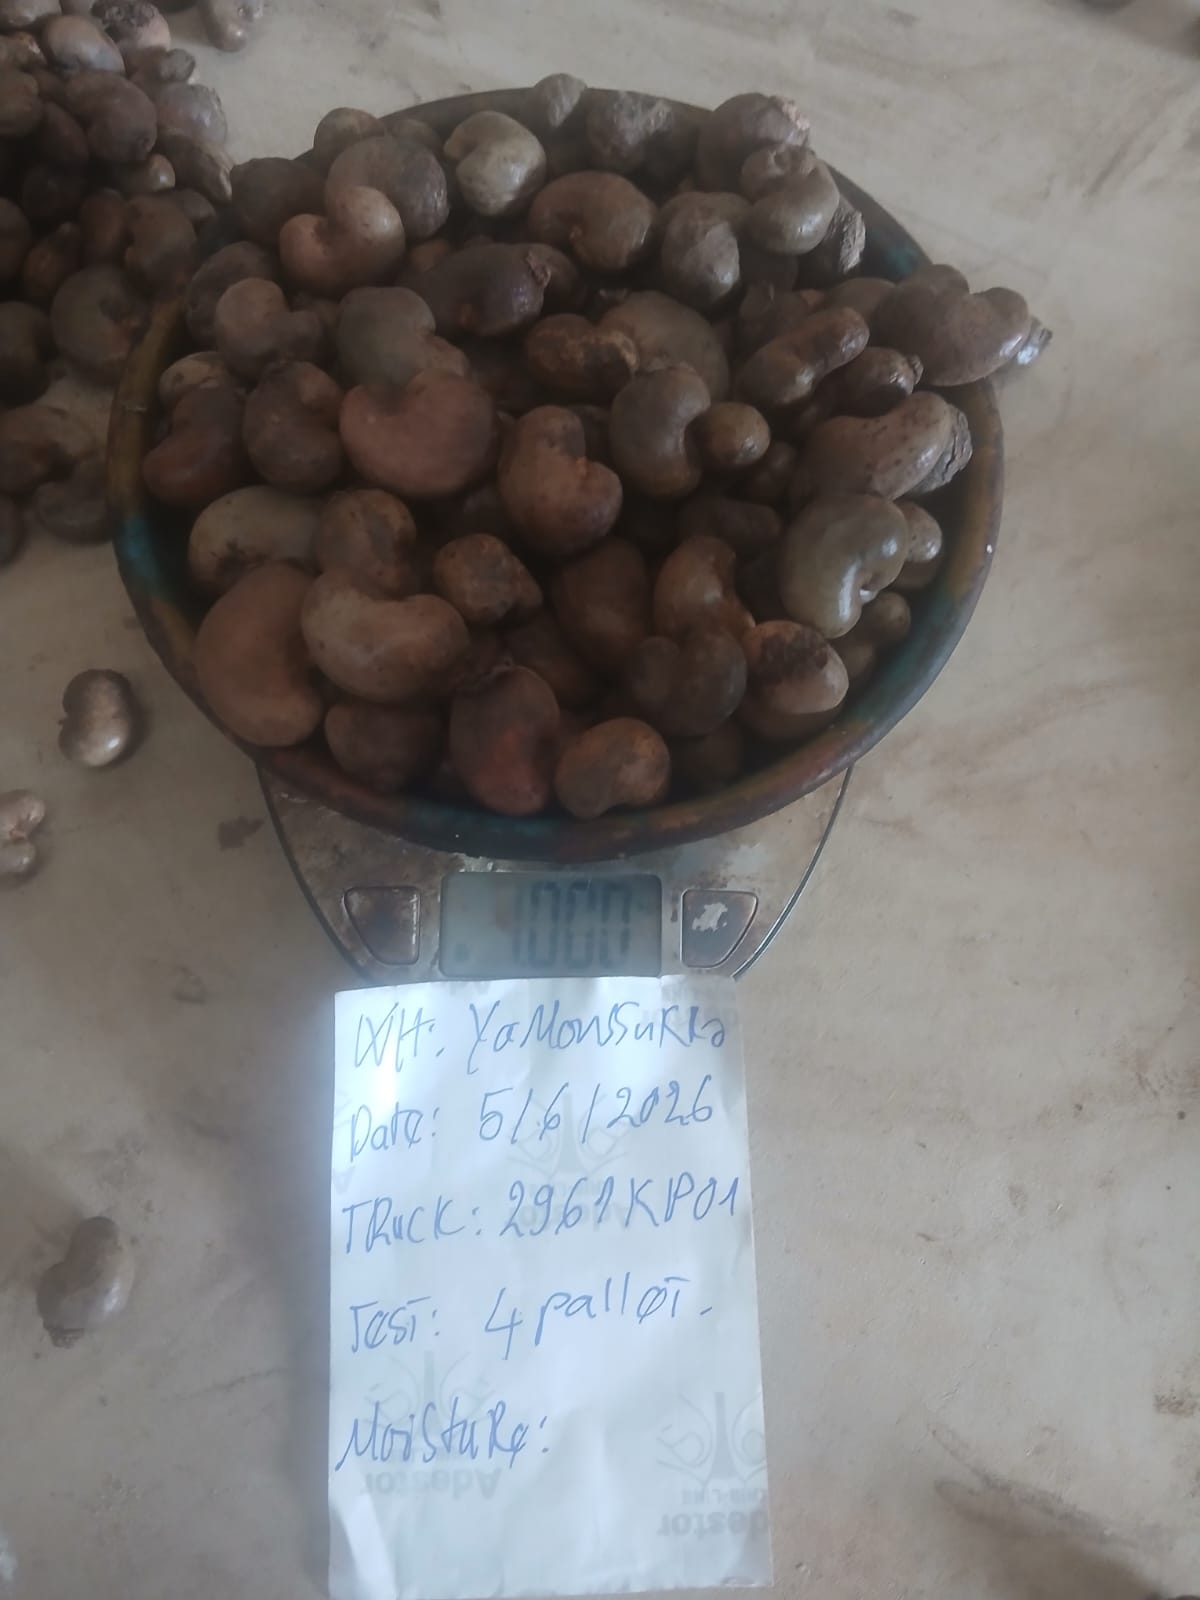 1.000
WH: YaMoussukro
Date: 5/6/2026
TRuck: 2961KP01
Test: 4 pallet.
Moisture:
Adestor
Adestor